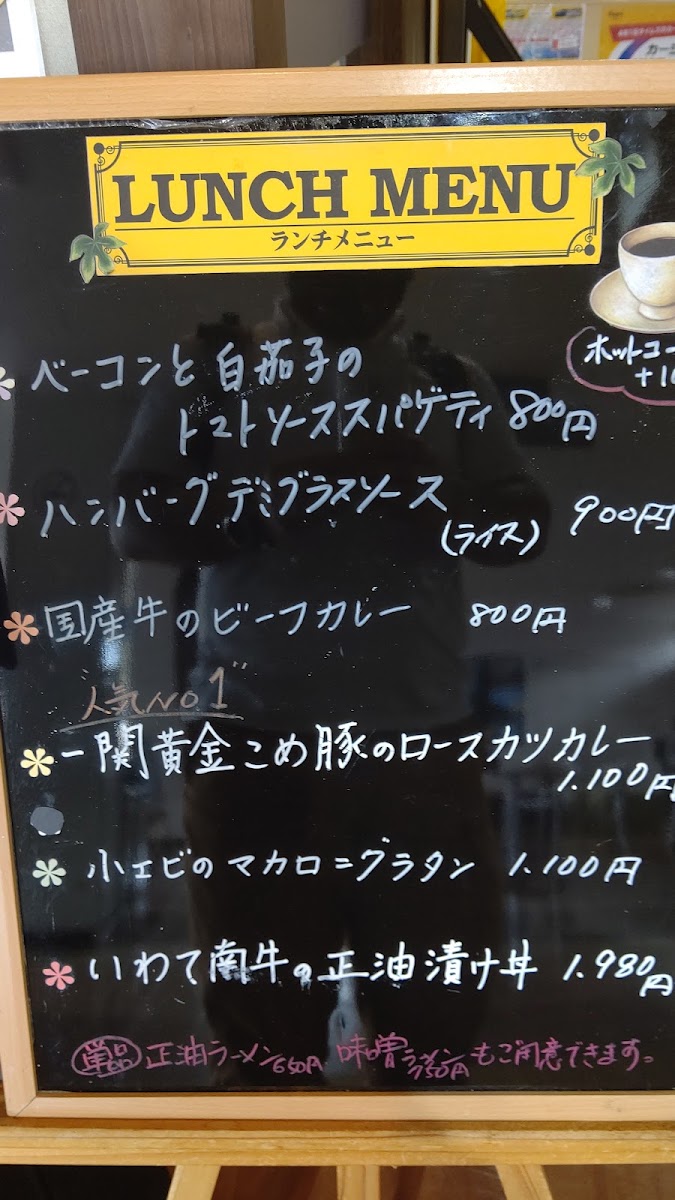 LUNCH MENU
ランチメニュー
ホットコー
ベーコンと白茄子の
トマトソーススパゲティ 800円
ハンバーグデミグラスソース
(ライス) 900円
国産牛のビーフカレー 800円
"人気NO1"
一関黄金こめ豚のロースカツカレー
1.100円
小エビのマカロニグラタン 1.100円
いわて南牛の正油漬け丼 1.980円
単品 正油ラーメン650円 味噌ラーメン750円もご用意できます。